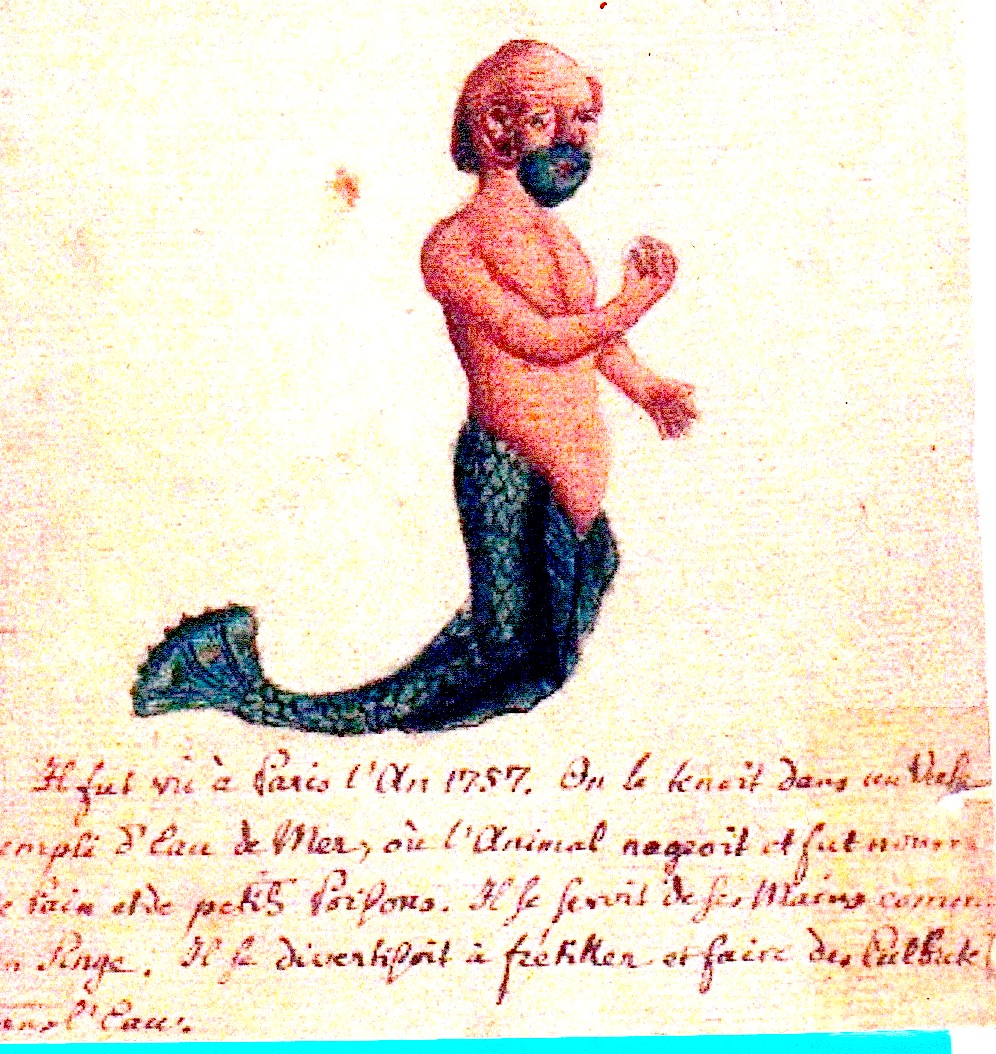 Il fut vû à Paris l'An 1757. On le tenoit dans un
empli d'Eau de Mer, où l'Animal nageoit et fut nourri
e Pain et de petits Poiſſons. Il ſe ſervit de ſes Mains comm
n Singe. Il ſe divertiſſoit à fretiller et faire des Culbute
ans l'Eau.